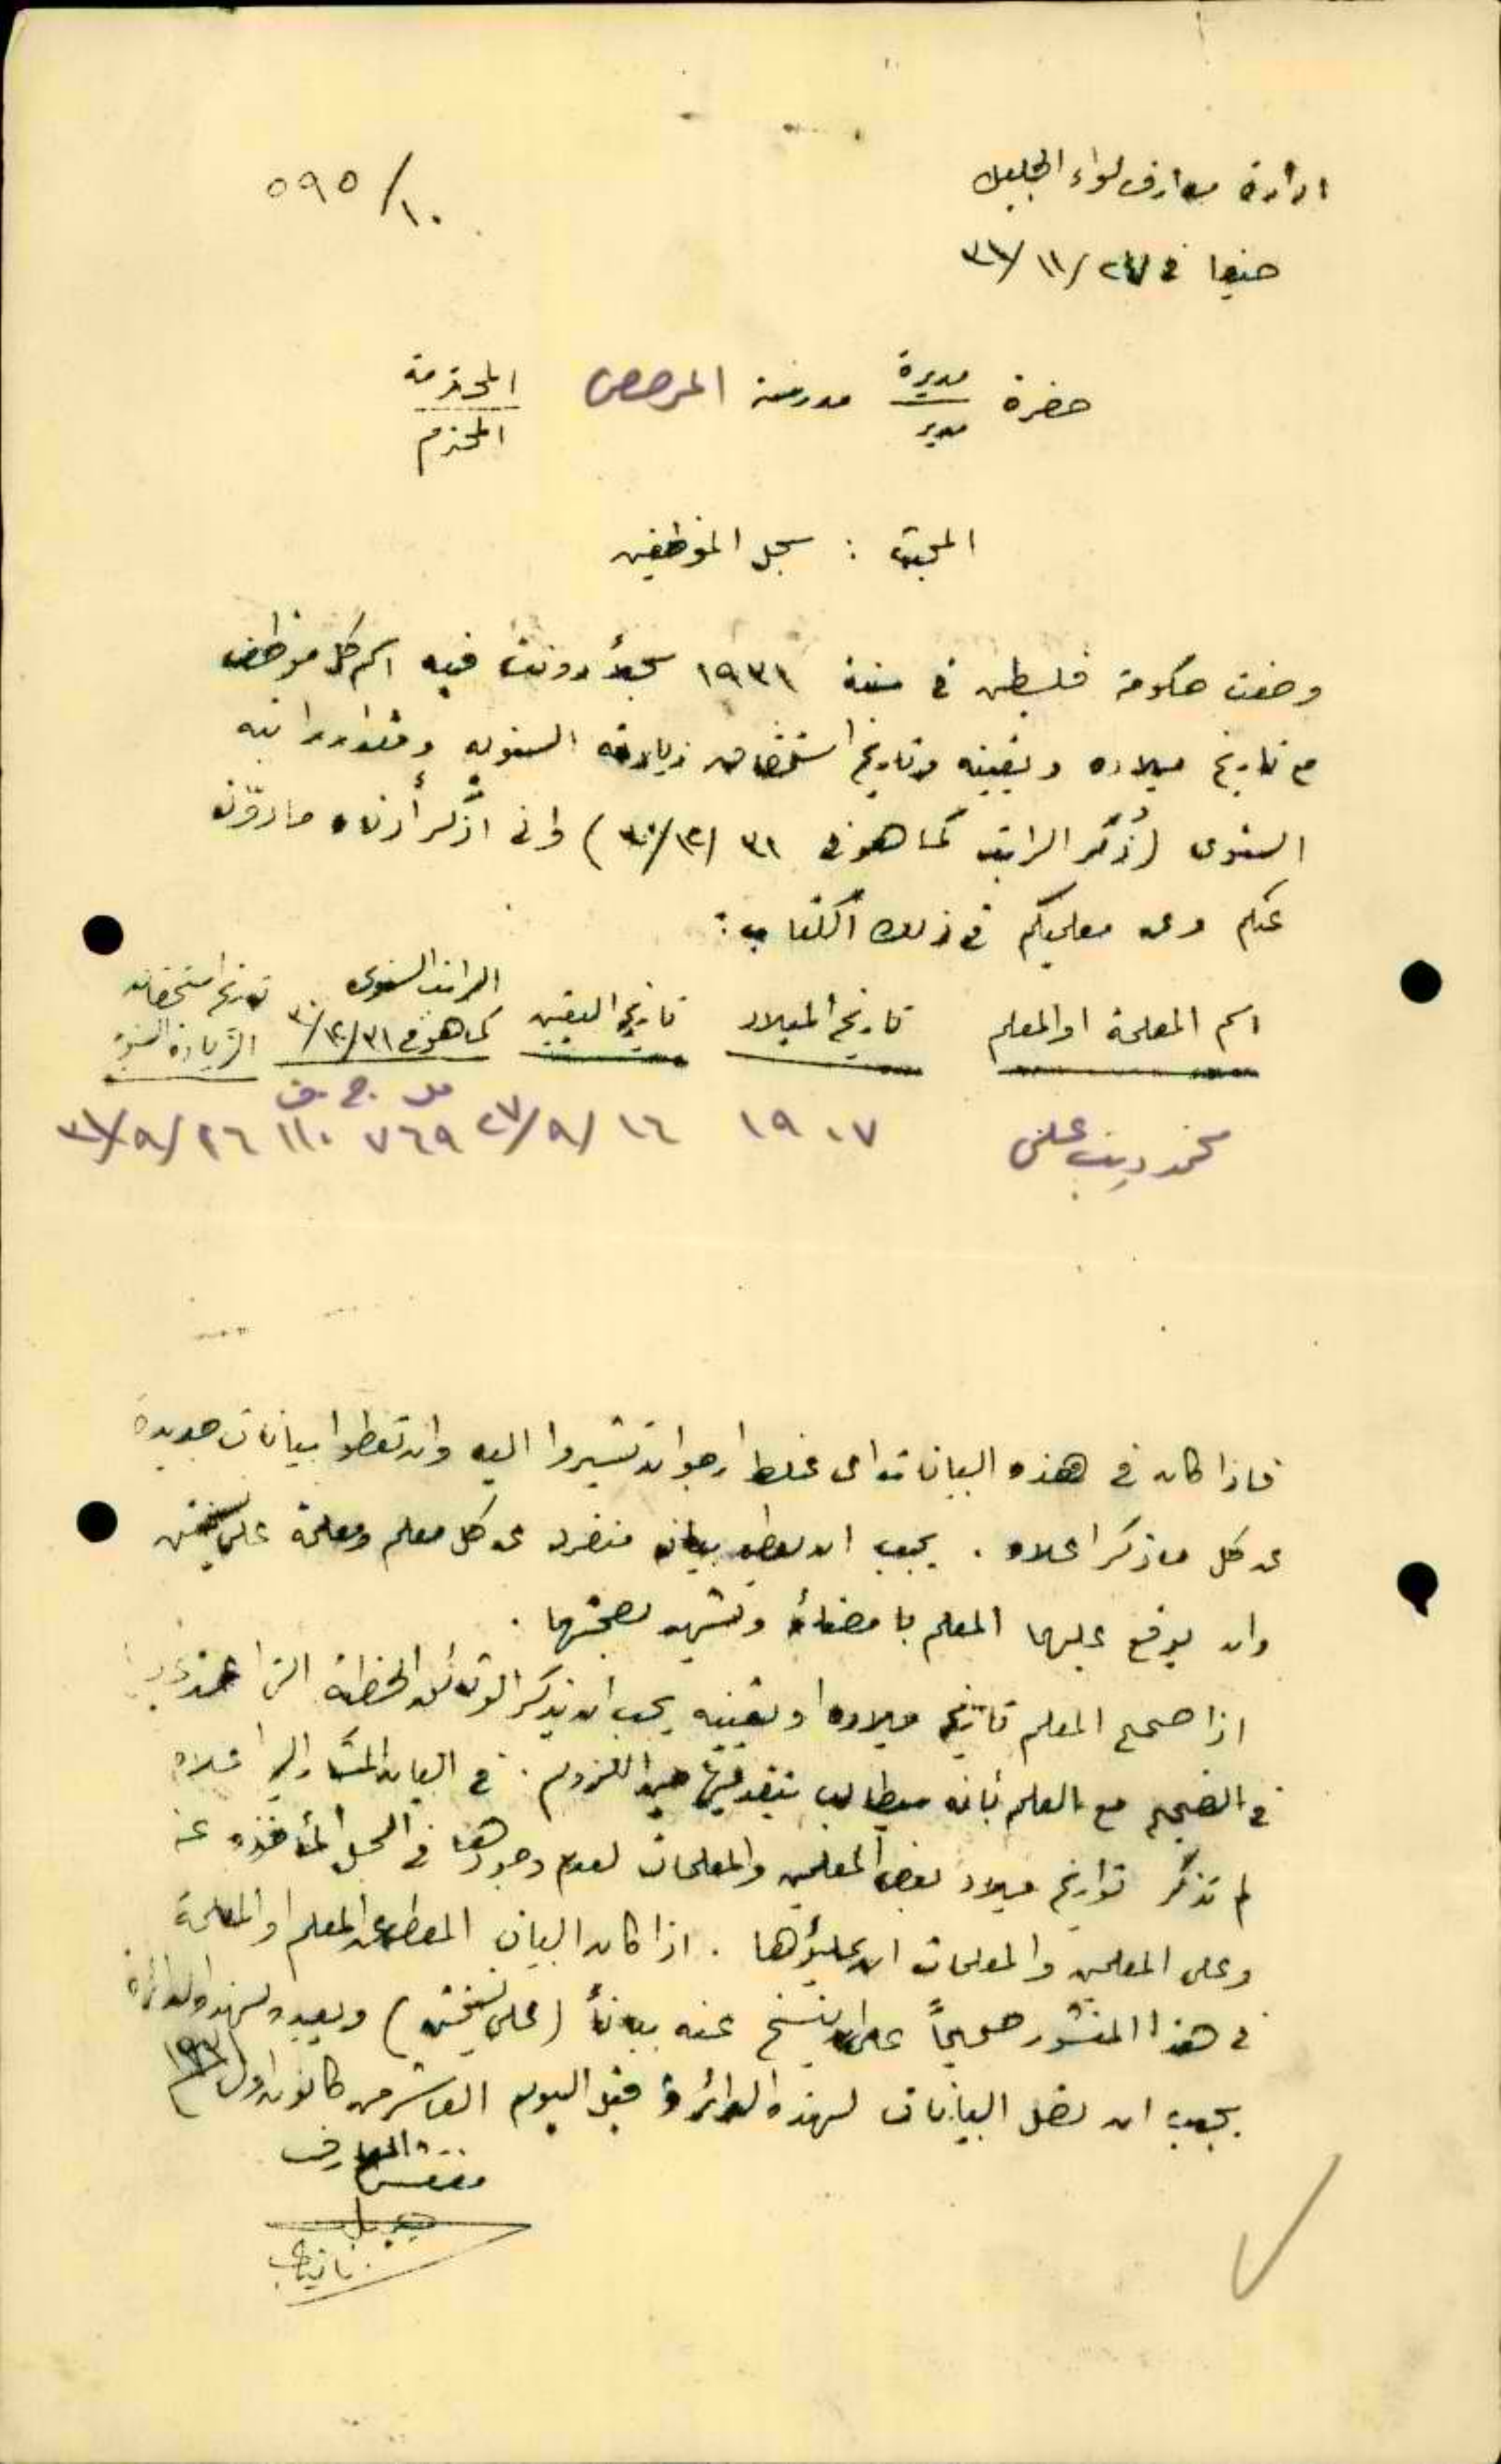 ادارة معارف لواء الجليل
٥٩٥/١٠
حيفا في ٢٧/١١/٣١
حضرة مديرة مدرسة المحترمة
مدير المحترم
المبحث : سجل الموظفين
وضعت حكومة فلسطين في سنة ١٩٣١ سجلاً دونت فيه اسم كل موظف
مع تاريخ ميلاده وتعيينه وتاريخ استحقاق زيادته السنوية ومقدار راتبه
السنوي (ذُكر الراتب كما هو في ٣١/١٢/٣٠) واني اذكر أدناه ما دوّن
عنكم وعن معلميكم في ذلك الكتاب :
اسم المعلمة او المعلم تاريخ الميلاد تاريخ التعيين الراتب السنوي كما هو في ٣١/١٢/٣٠ تاريخ استحقاق الزيادة السنوية
مل ج.ف
محمد ديب علي ١٩٠٧ ١٦/٩/٢٧ ٧٦٩ ١١٠ ٢٦/٩/٣١
فاذا كان في هذه البيانات اي غلط ارجو ان تشيروا اليه وان تعطوا بيانات جديدة
عن كل ما ذكر اعلاه . يجب ان يعطى بيان منفرد عن كل معلم ومعلمة على نسختين
وان يوقع عليها المعلم بامضائه وتشهد بصحتها .
اذا صحح المعلم تاريخ ميلاده او تعيينه يجب ان يذكر الوثائق الخطية التي
في التصحيح مع العلم بأنه سيطالب بتقديمها حين اللزوم . في البيان المشار اليه اعلاه
لم تذكر تواريخ ميلاد بعض المعلمين والمعلمات لعدم وجودها في السجل المأخوذه عنه
وعلى المعلمين والمعلمات ان يملؤها . اذا كان البيان المعطى عن المعلم او المعلمة
في هذا المنشور صحيحاً عليه ان ينسخ عنه بياناً (على نسختين) ويعيده لهذه الدائرة
يجب ان تصل البيانات لهذه الدائرة قبل اليوم العاشر من كانون اول ١٩٣١
مفتش المعارف
بالنيابة